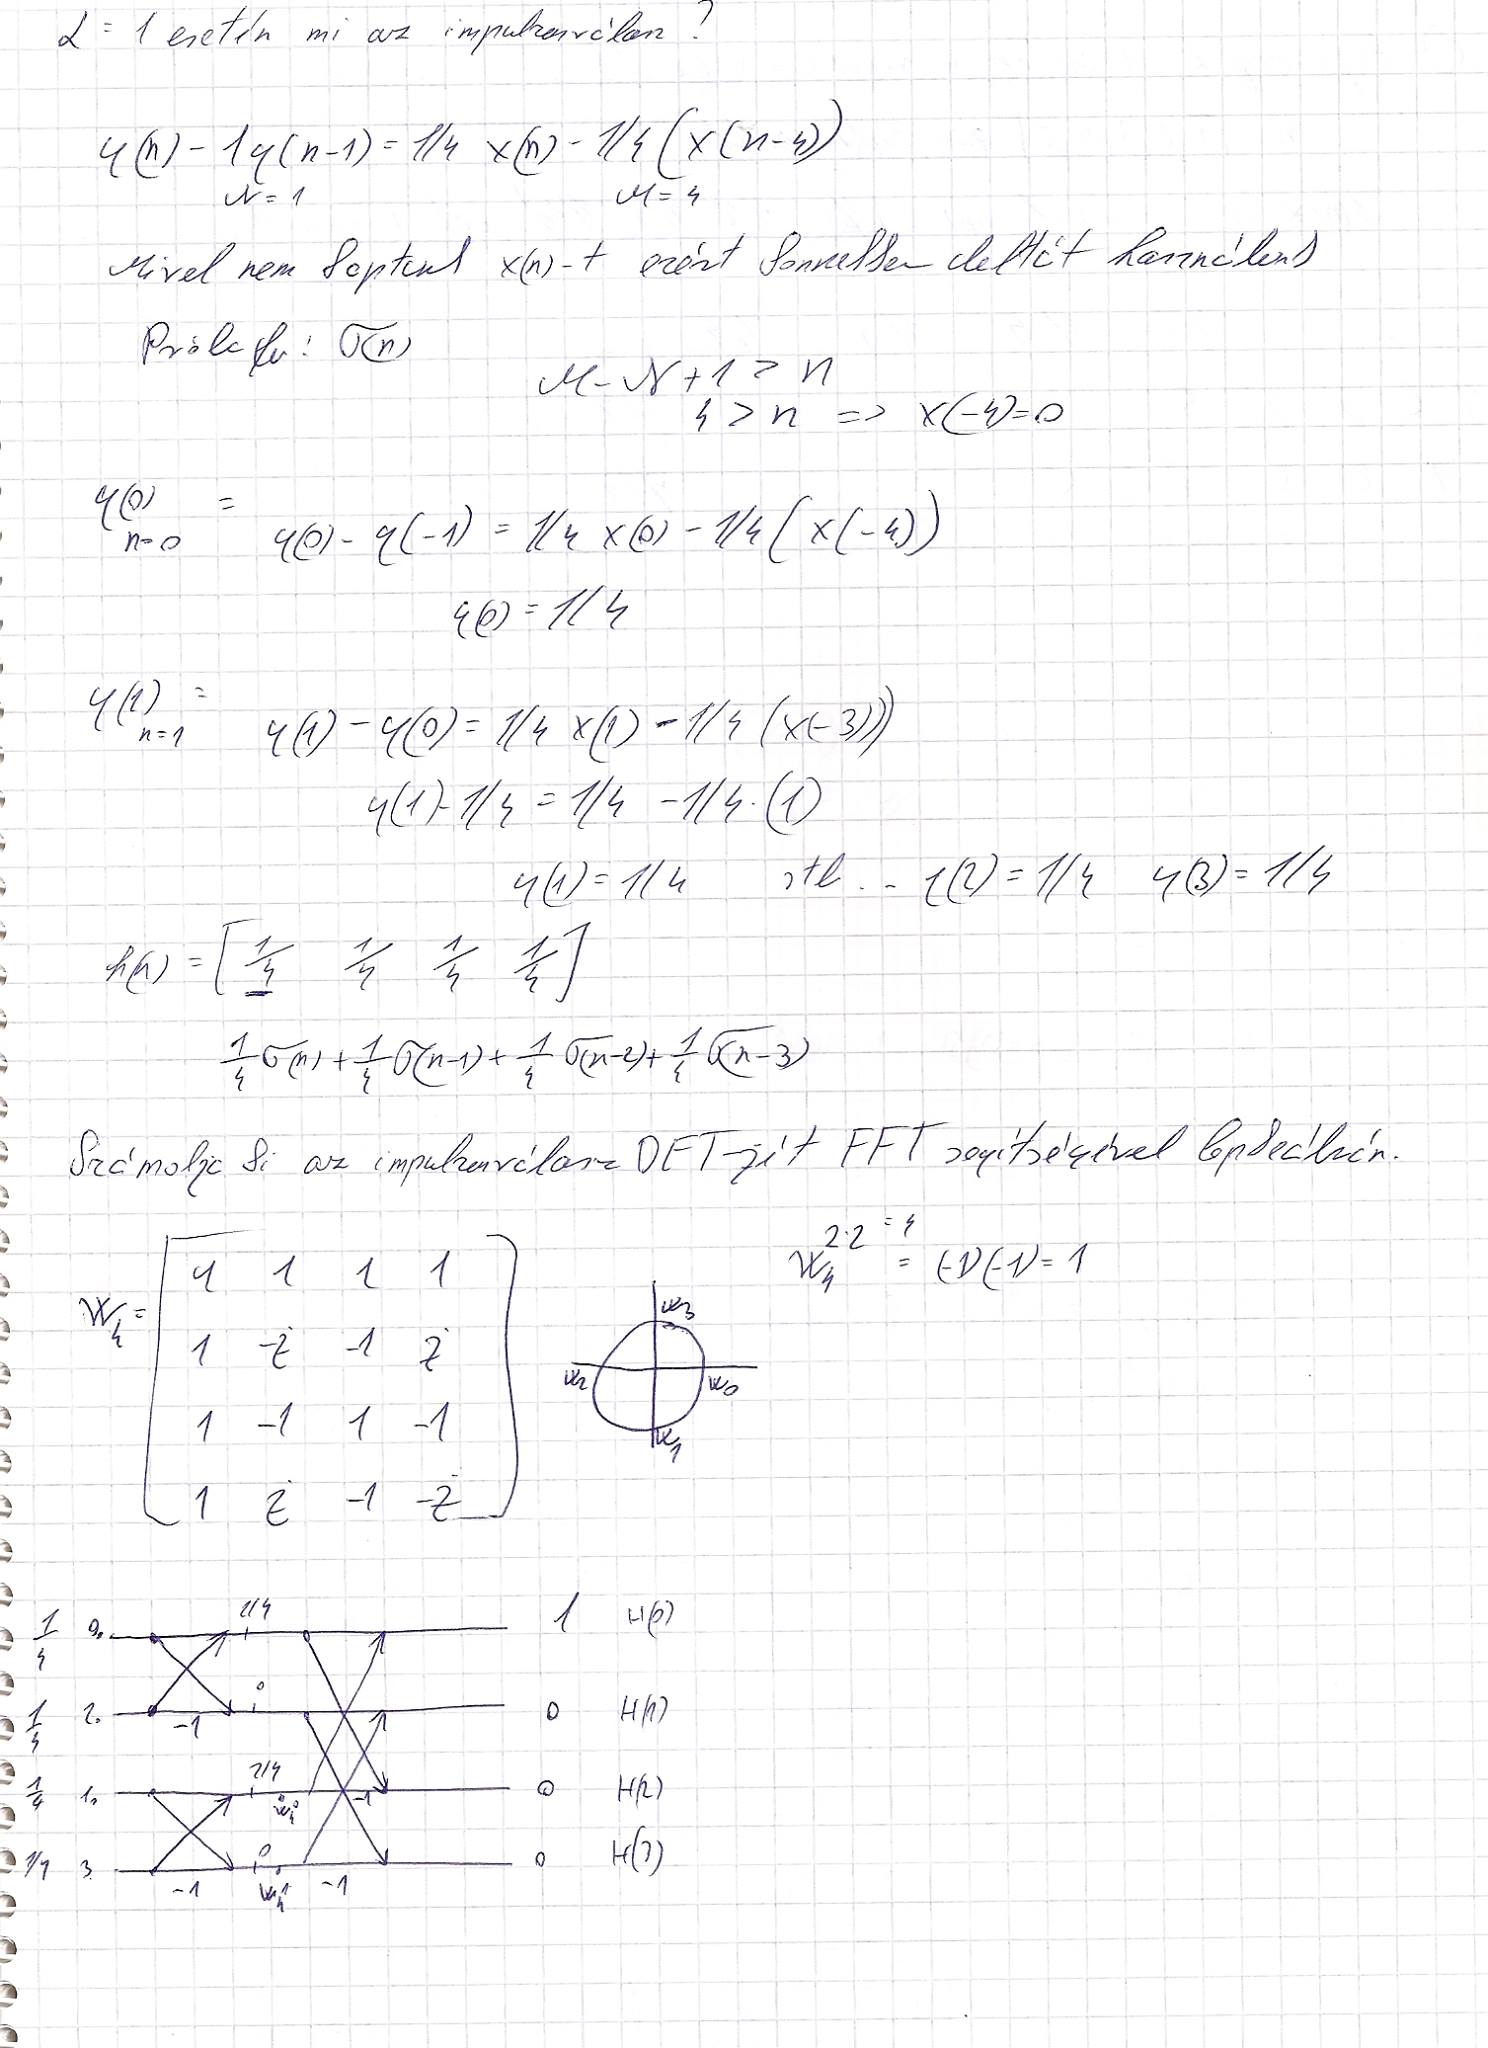 α = 1 esetén mi az impulzusválasz?
y(n) - 1y(n-1) = 1/4 x(n) - 1/4(x(n-4))
N=1 M=4
Mivel nem kaptunk x(n)-t ezért deltát használunk
Próba fv: δ(n)
M-N+1 > n
4 > n => x(-4)=0
y(0) =
n=0 y(0) - y(-1) = 1/4 x(0) - 1/4(x(-4))
y(0) = 1/4
y(1) =
n=1 y(1) - y(0) = 1/4 x(1) - 1/4 (x(-3)))
y(1) - 1/4 = 1/4 - 1/4·(1)
y(1) = 1/4 stb .. y(2) = 1/4 y(3) = 1/4
h(n) = [1/4 1/4 1/4 1/4]
1/4 δ(n) + 1/4 δ(n-1) + 1/4 δ(n-2) + 1/4 δ(n-3)
Számolja ki az impulzusválasz DFT-jét FFT segítségével
W4^2·2 =4 = (-1)(-1) = 1
W4 =
1 1 1 1
1 -j -1 j
1 -1 1 -1
1 j -1 -j
w3
w2 w0
w1
1/4 0. 2/4 1 H(0)
1/4 2. -1 0 0 H(1)
1/4 1. 2/4 W4^0 -1 0 H(2)
1/4 3. -1 0 W4^1 -1 0 H(3)